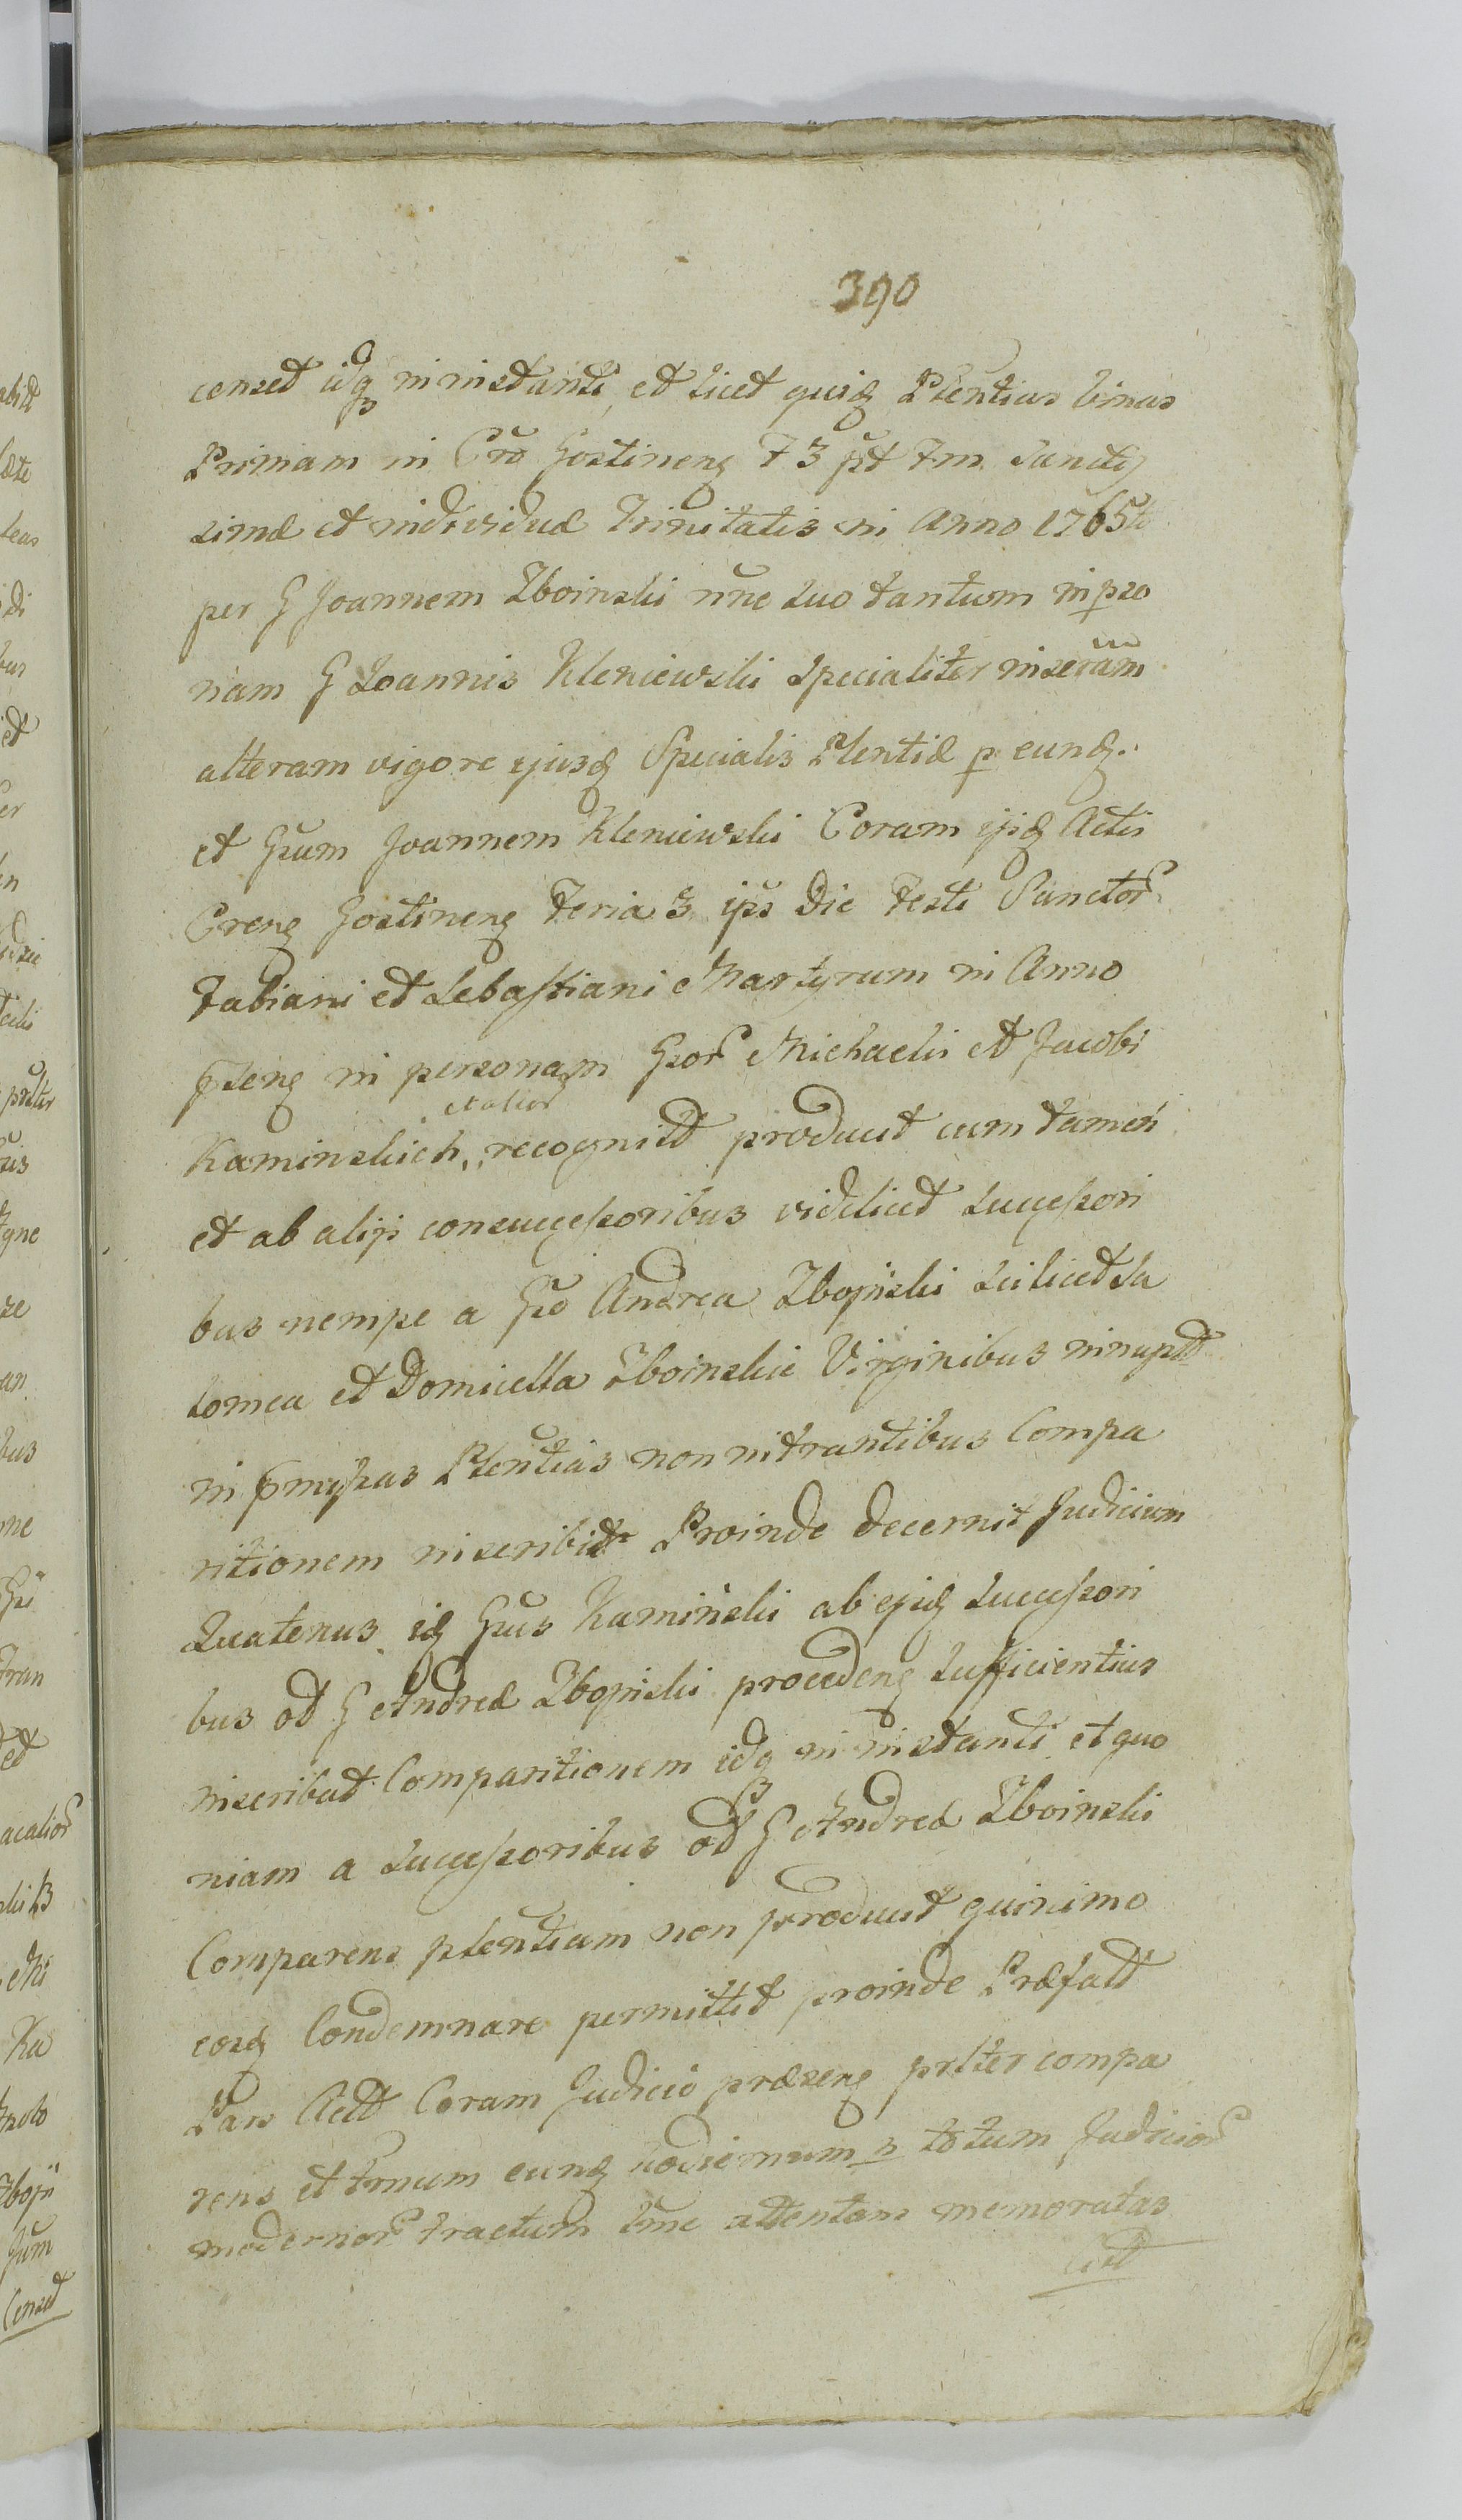 390
censet idq; in instanti, et licet quid Plentias binas
Primam in Cro Gostinens F 3 pt Fm Sanctis
simæ et individuæ Trinitatis in Anno 1765to
per G Joannem Zboinski nne suo tantum in perso
nam G Joannis Kleniewski Specialiter inseram
alteram vigore ejusd Specialis Plentiæ p eund
et Gsum Joannem Kleniewski Coram ijsd Actis
Crens Gostinens Feria 3 ips Die Festi Sanctor
Fabiani et Sebastiani Martyrum in Anno
psens in personam Gsor Michaelis et Jacobi
et alior
Kaminskich, recognit producit cum tamen
et ab alijs consuccessoribus videlicet successori
bus nempe a Gso Andrea Zboiński scilicet Sa
lomea et Domicella Zboinskie Virginibus innupt
in pmissas Plentias non intrantibus Compa
ritionem inscribit Proinde decernit Judicium
Quatenus id Gsus Kamiński ab ejusd successori
bus od G Andreæ Zboiński procedens sufficientius
inscribat Comparitionem idq in instanti et quo
niam a successoribus od G Andreæ Zboinski
Comparens plentiam non producit quinimo
eosd Condemnare permittit proinde Præfatt
Pars Act Coram Judicio præsens prltter compa
rens et Frnum eund hodiernum totum Judicior
modernor tractum tme attentam memoratas
Cit